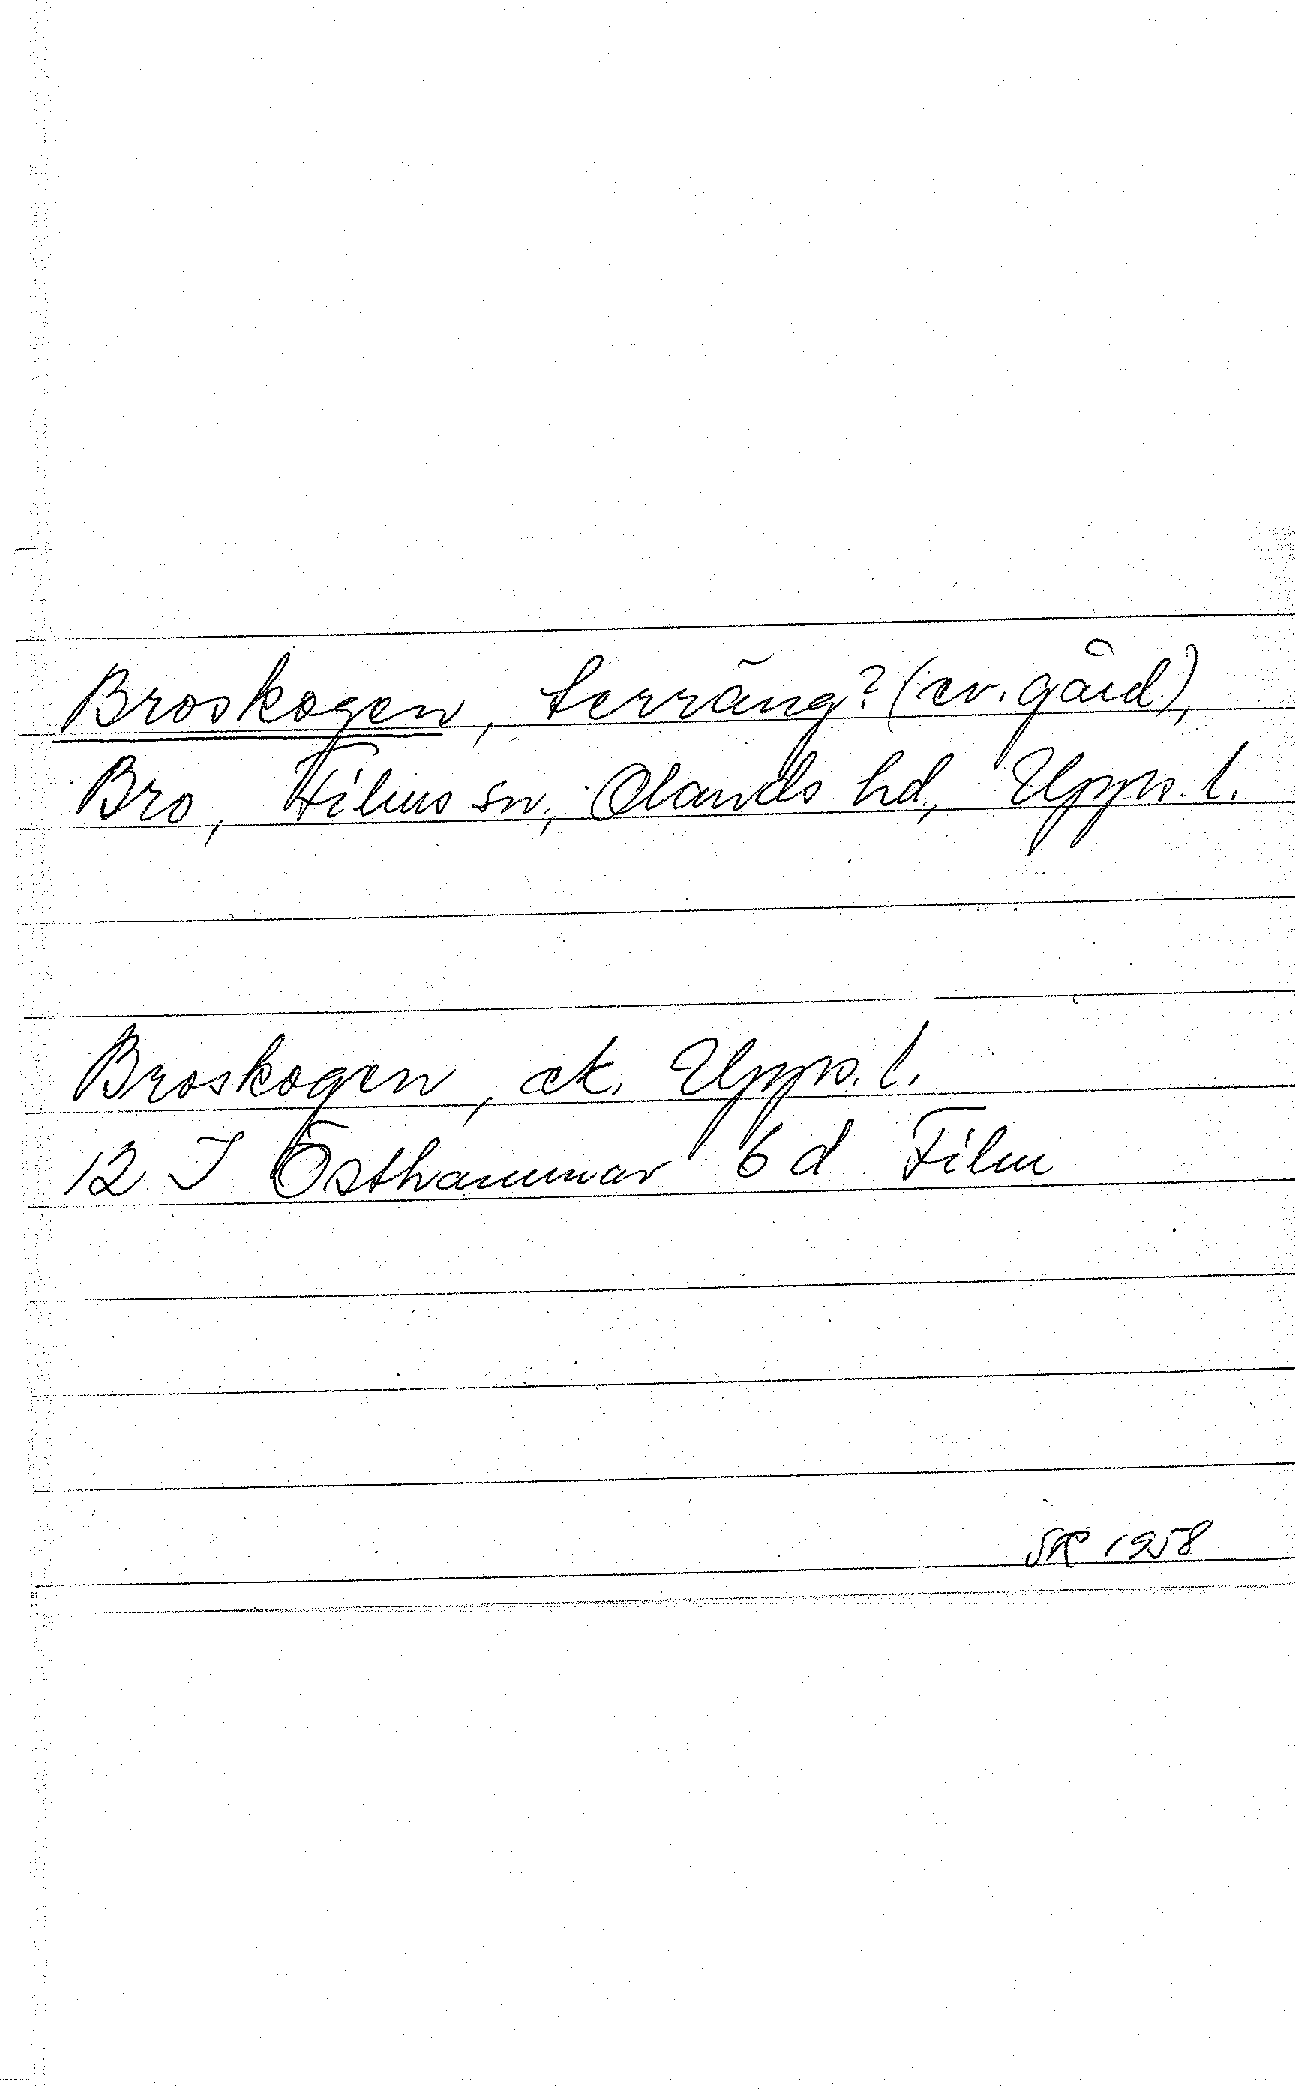 Broskogen, terräng? (ev. gård),
Bro, Films sn, Olands hd, Upps. l.
Broskogen, ek. Upps. l.
12 I Östhammar 6 d Film
1958